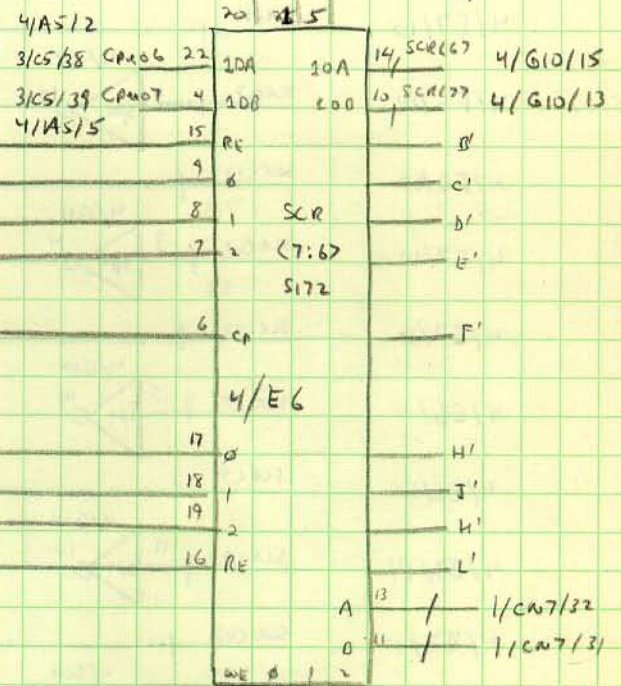 4/A5/2 20 2 1 5
3/C5/38 CPU06 22 1DA 10A 14 SCR<6> 4/G10/15
3/C5/39 CPU07 4 1DB 10B 10 SCR<7> 4/G10/13
4/A5/5
15 RE B'
9 ø C'
8 1 SCR D'
7 2 <7:6> E'
S172
6 CP F'
4/E6
17 ø H'
18 1 J'
19 2 H'
16 RE L'
A 13 1/CN7/32
B 11 1/CN7/31
WE ø 1 2